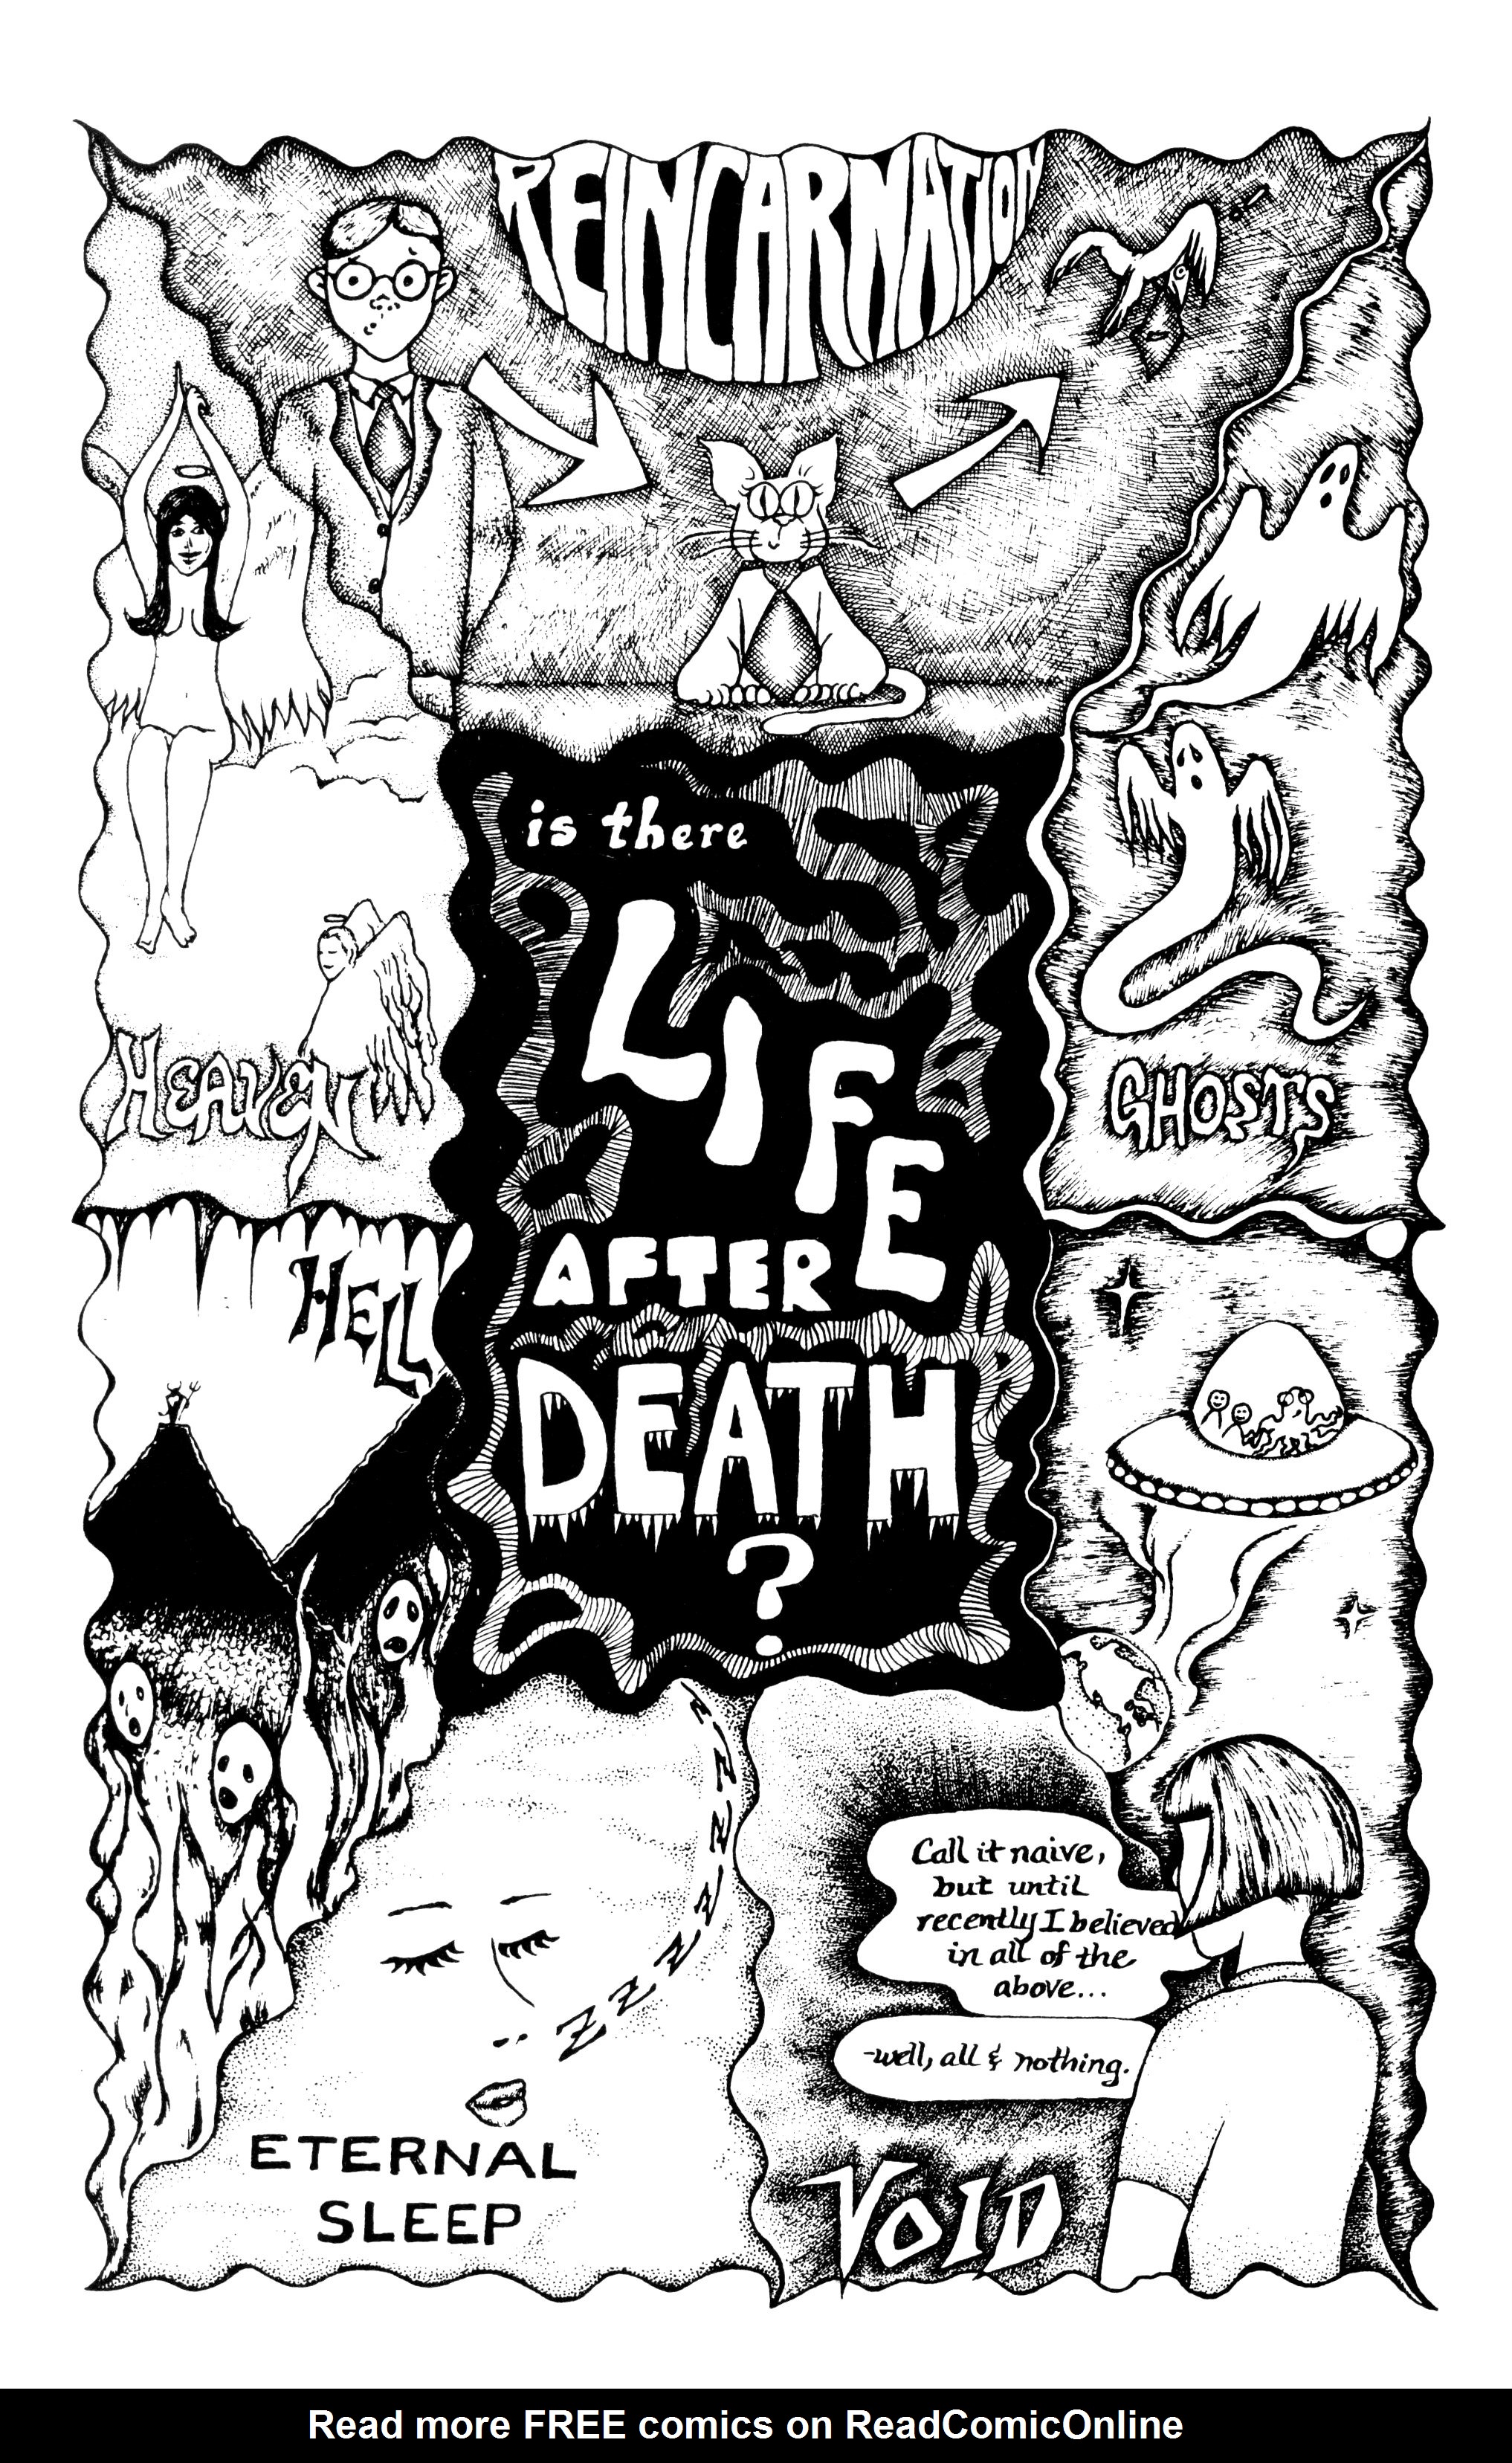 REINCARNATION
is there
LIFE
AFTER
DEATH
?
HEAVEN
GHOSTS
HELL
ZZZZZZZZZ
Call it naive,
but until
recently I believed
in all of the
above...
-well, all & nothing.
ETERNAL
SLEEP
VOID
Read more FREE comics on ReadComicOnline